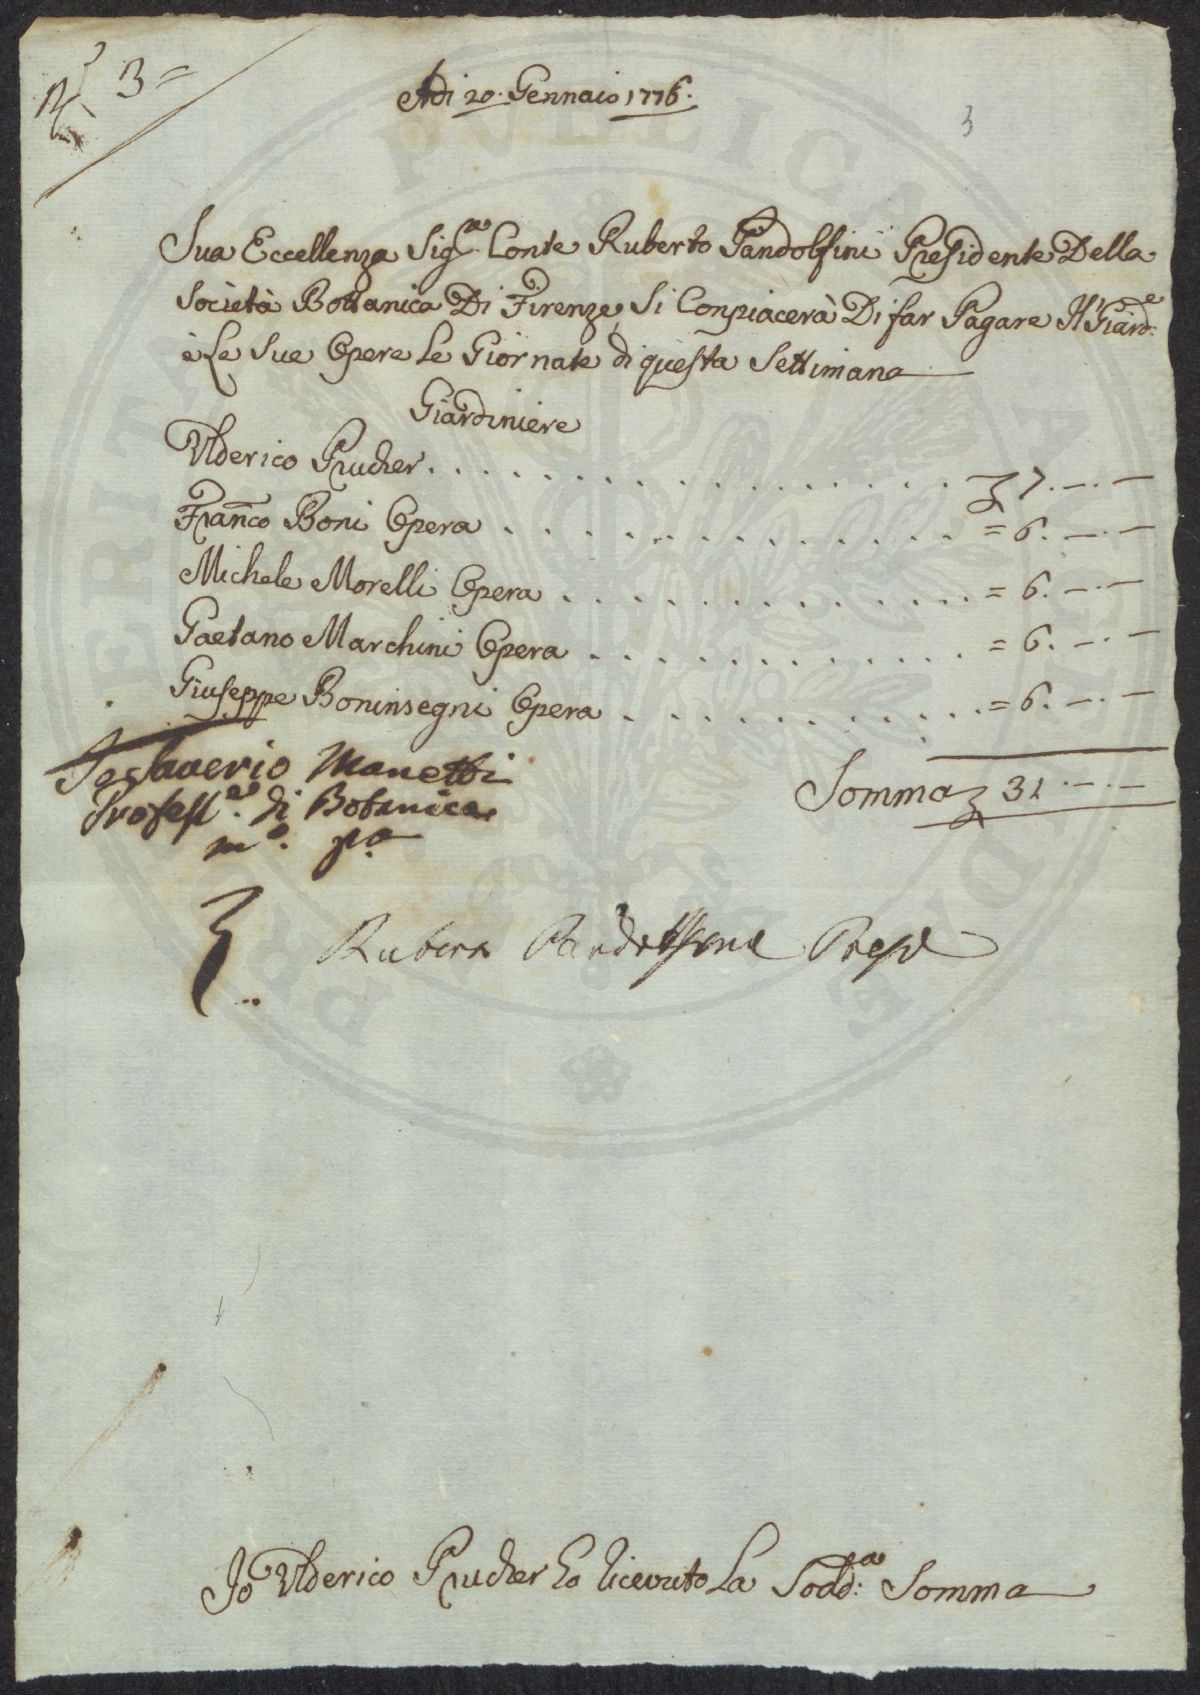 3 =
Adi 20. Gennaio 1776.
3
Sua Eccellenza Sig.re Conte Ruberto Pandolfini Presidente Della
Società Bottanica Di Firenze, Si Conpiacerà Di far Pagare Il Giard:e
è Le Sue Opere Le Giornate di questa Settimana
Giardiniere
Ulderico Prucher . . . . . . . . . . . . . . . . . . 7. —. —
Franco Boni Opera . . . . . . . . . . . . . . . = 6. —. —
Michele Morelli Opera . . . . . . . . . . . . . . = 6. —. —
Gaetano Marchini Opera . . . . . . . . . . . . . = 6. —. —
Giuseppe Boninsegni Opera . . . . . . . . . . . . = 6. —. —
Saverio Manetti
Somma 31. —. —
Profess.re di Botanica
m.o p.a
Ruberto Pandolfini Presid
Io Ulderico Prucher Ho Ricevuto La Sodd:a Somma
PUBLICAE